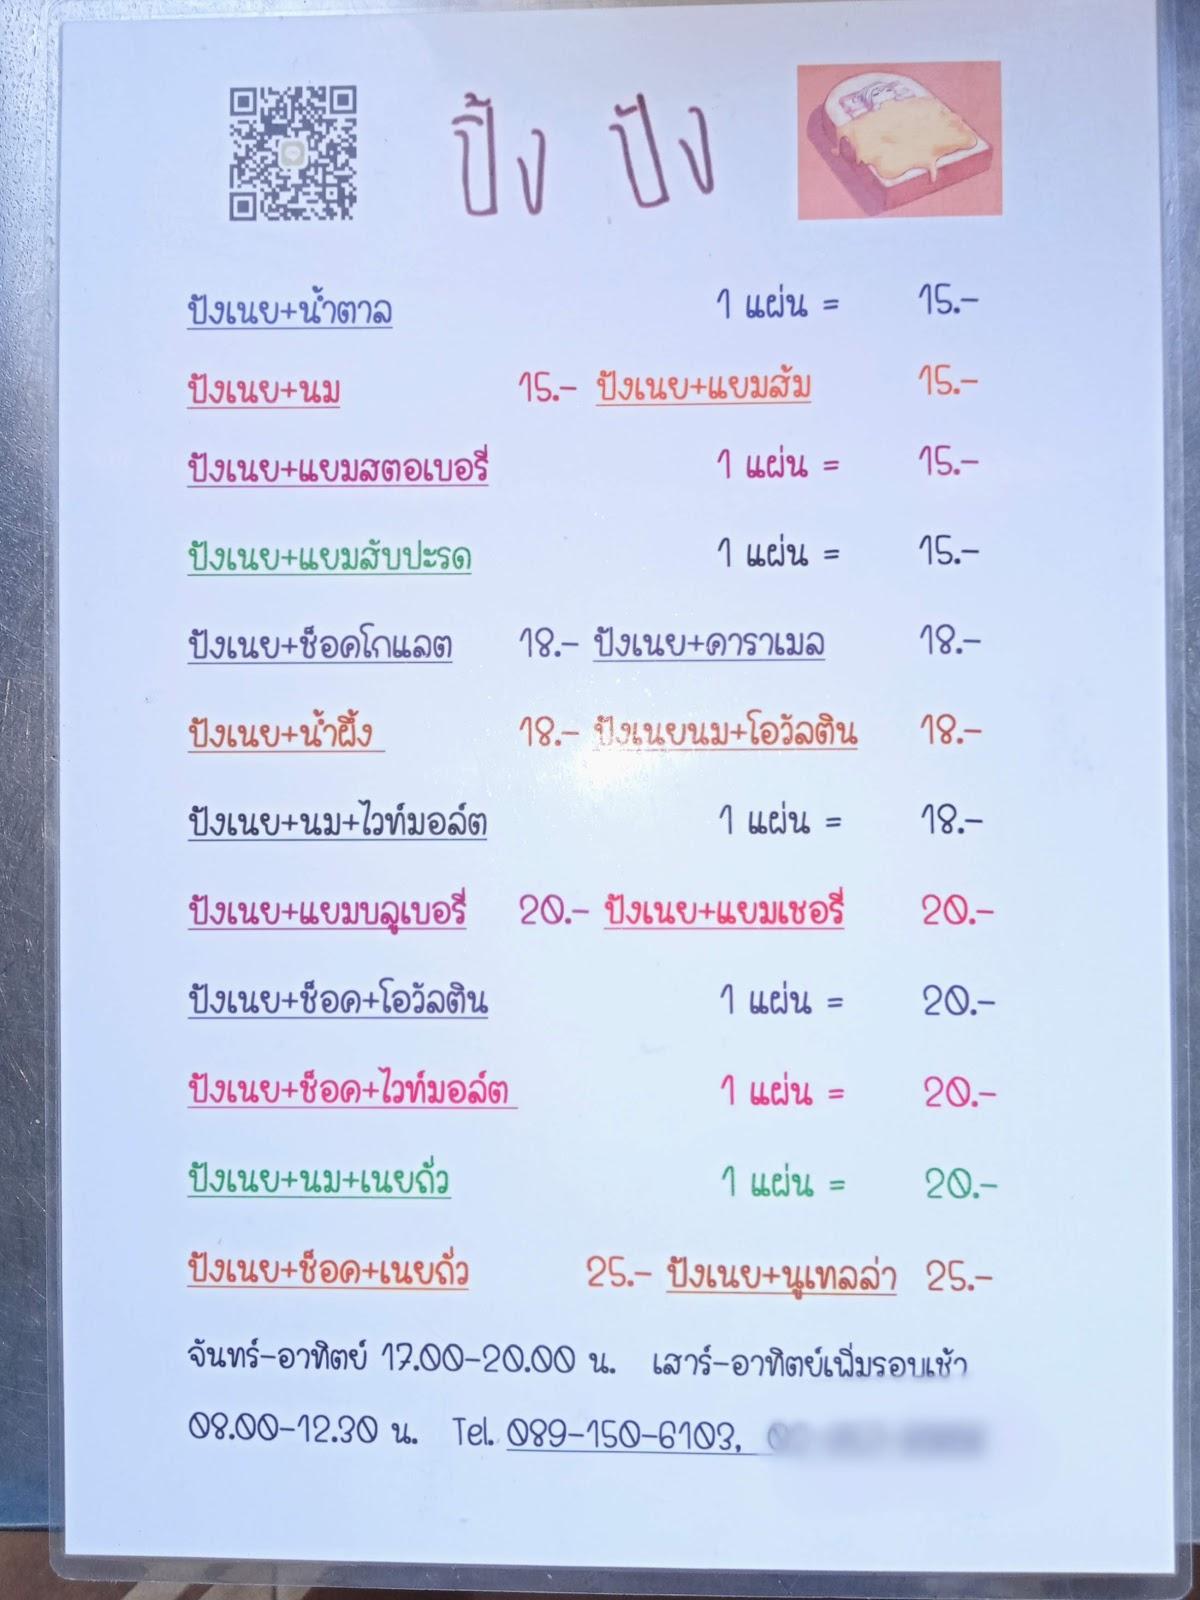 ปิ้ง ปัง
ปังเนย+น้ำตาล 1 แผ่น = 15.-
ปังเนย+นม 15.- ปังเนย+แยมส้ม 15.-
ปังเนย+แยมสตอเบอรี่ 1 แผ่น = 15.-
ปังเนย+แยมสับปะรด 1 แผ่น = 15.-
ปังเนย+ช็อคโกแลต 18.- ปังเนย+คาราเมล 18.-
ปังเนย+น้ำผึ้ง 18.- ปังเนยนม+โอวัลติน 18.-
ปังเนย+นม+ไวท์มอล์ต 1 แผ่น = 18.-
ปังเนย+แยมบลูเบอรี่ 20.- ปังเนย+แยมเชอรี่ 20.-
ปังเนย+ช็อค+โอวัลติน 1 แผ่น = 20.-
ปังเนย+ช็อค+ไวท์มอล์ต 1 แผ่น = 20.-
ปังเนย+นม+เนยถั่ว 1 แผ่น = 20.-
ปังเนย+ช็อค+เนยถั่ว 25.- ปังเนย+นูเทลล่า 25.-
จันทร์-อาทิตย์ 17.00-20.00 น. เสาร์-อาทิตย์เพิ่มรอบเช้า
08.00-12.30 น. Tel. 089-150-6103,